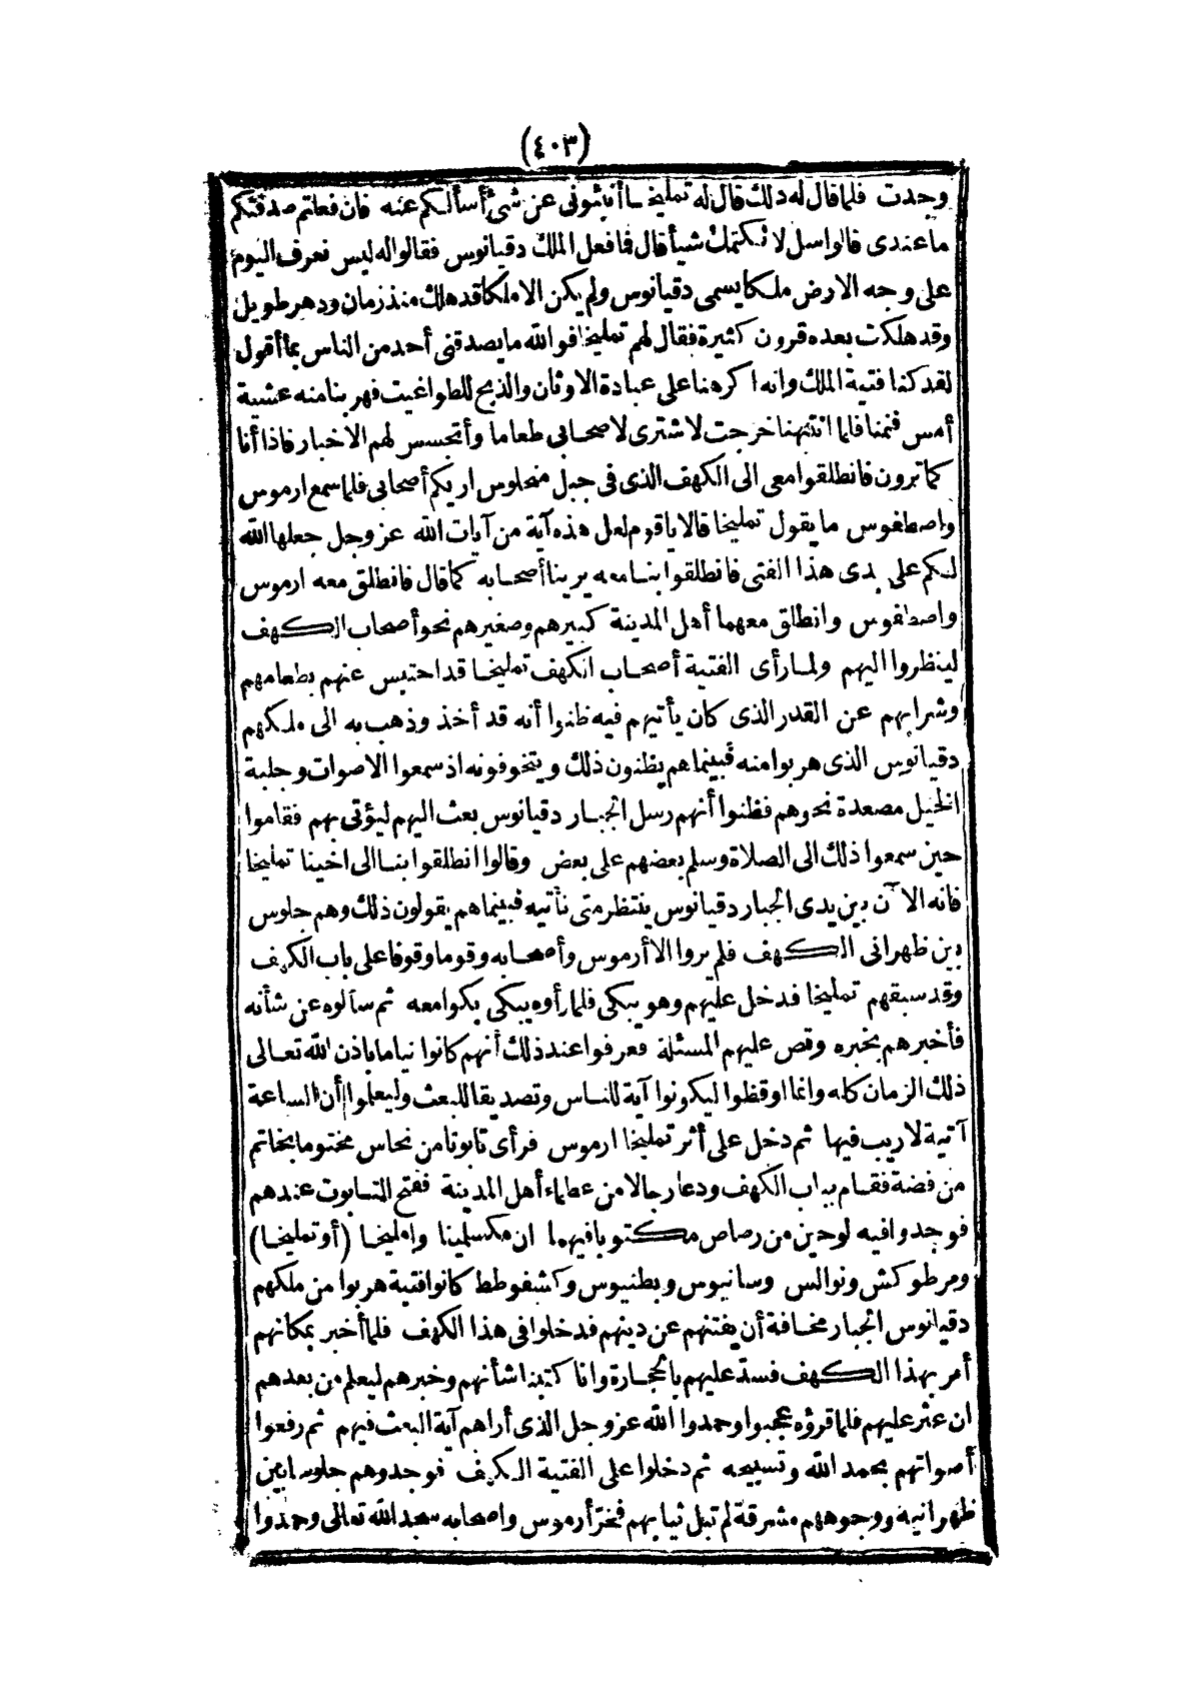 (٤٠٣)
وجدت فلما قال له ذلك قال له تمليخا أنبئوني عن شئ أسألكم عنه فان فعلتم صدقتكم
ما عندى قالوا سل لا نكتمك شيأ قال فما فعل الملك دقيانوس فقالوا له ليس نعرف اليوم
على وجه الارض ملكا يسمى دقيانوس ولم يكن الا ملكا قد هلك منذ زمان ودهر طويل
وقد هلكت بعده قرون كثيرة فقال لهم تمليخا فوالله ما يصدقنى أحد من الناس بما أقول
لقد كنا فتية الملك وانه اكرهنا على عبادة الاوثان والذبح للطواغيت فهربنا منه عشية
أمس فنمنا فلما انتبهنا خرجت لاشترى لاصحابى طعاما وأتحسس لهم الاخبار فاذا أنا
كما ترون فانطلقوا معى الى الكهف الذى فى جبل منحلوس اريكم أصحابى فلما سمع ارموس
واصطفوس ما يقول تمليخا قالا يا قوم لعل هذه آية من آيات الله عز وجل جعلها الله
لكم على يدى هذا الفتى فانطلقوا بنا معه يرينا أصحابه كما قال فانطلق معه ارموس
واصطفوس وانطلق معهما أهل المدينة كبيرهم وصغيرهم نحو أصحاب الكهف
لينظروا اليهم ولما رأى الفتية أصحاب الكهف تمليخا قد احتبس عنهم بطعامهم
وشرابهم عن القدر الذى كان يأتيهم فيه ظنوا أنه قد أخذ وذهب به الى ملكهم
دقيانوس الذى هربوا منه فبينما هم يظنون ذلك ويتخوفونه اذ سمعوا الاصوات وجلبة
الخيل مصعدة نحوهم فظنوا أنهم رسل الجبار دقيانوس بعث اليهم ليؤتى بهم فقاموا
حين سمعوا ذلك الى الصلاة وسلم بعضهم على بعض وقالوا انطلقوا بنا الى اخينا تمليخا
فانه الآن بين يدى الجبار دقيانوس ينتظر متى نأتيه فبينما هم يقولون ذلك وهم جلوس
بين ظهرانى الكهف فلم يروا الا أرموس وأصحابه وقوما وقوفا على باب الكهف
وقد سبقهم تمليخا فدخل عليهم وهو يبكى فلما رأوه يبكى بكوا معه ثم سألوه عن شأنه
فأخبرهم بخبره وقص عليهم المسئلة فعرفوا عند ذلك أنهم كانوا نياما باذن الله تعالى
ذلك الزمان كله وانما اوقظوا ليكونوا آية للناس وتصديقا للبعث وليعلموا أن الساعة
آتية لا ريب فيها ثم دخل على أثر تمليخا ارموس فرأى تابوتا من نحاس مختوما بخاتم
من فضة فقام بباب الكهف ودعا رجالا من عظماء أهل المدينة ففتح التابوت عندهم
فوجدوا فيه لوحين من رصاص مكتوبا فيهما ان مكسلمينا وامليخا (أو تمليخا)
ومرطوكش ونوالس وسانيوس وبطنيوس وكشفوطط كانوا فتية هربوا من ملكهم
دقيانوس الجبار مخافة أن يفتنهم عن دينهم فدخلوا فى هذا الكهف فلما أخبر بمكانهم
أمر بهذا الكهف فسد عليهم بالحجارة وانا كتبنا شأنهم وخبرهم ليعلم من بعدهم
ان عثر عليهم فلما قرؤه عجبوا وحمدوا الله عز وجل الذى أراهم آية البعث فيهم ثم رفعوا
أصواتهم بحمد الله وتسبيحه ثم دخلوا على الفتية الكهف فوجدوهم جلوسا بين
ظهرانيه ووجوههم مشرقة لم تبل ثيابهم فخر أرموس واصحابه سجدا لله تعالى وحمدوا